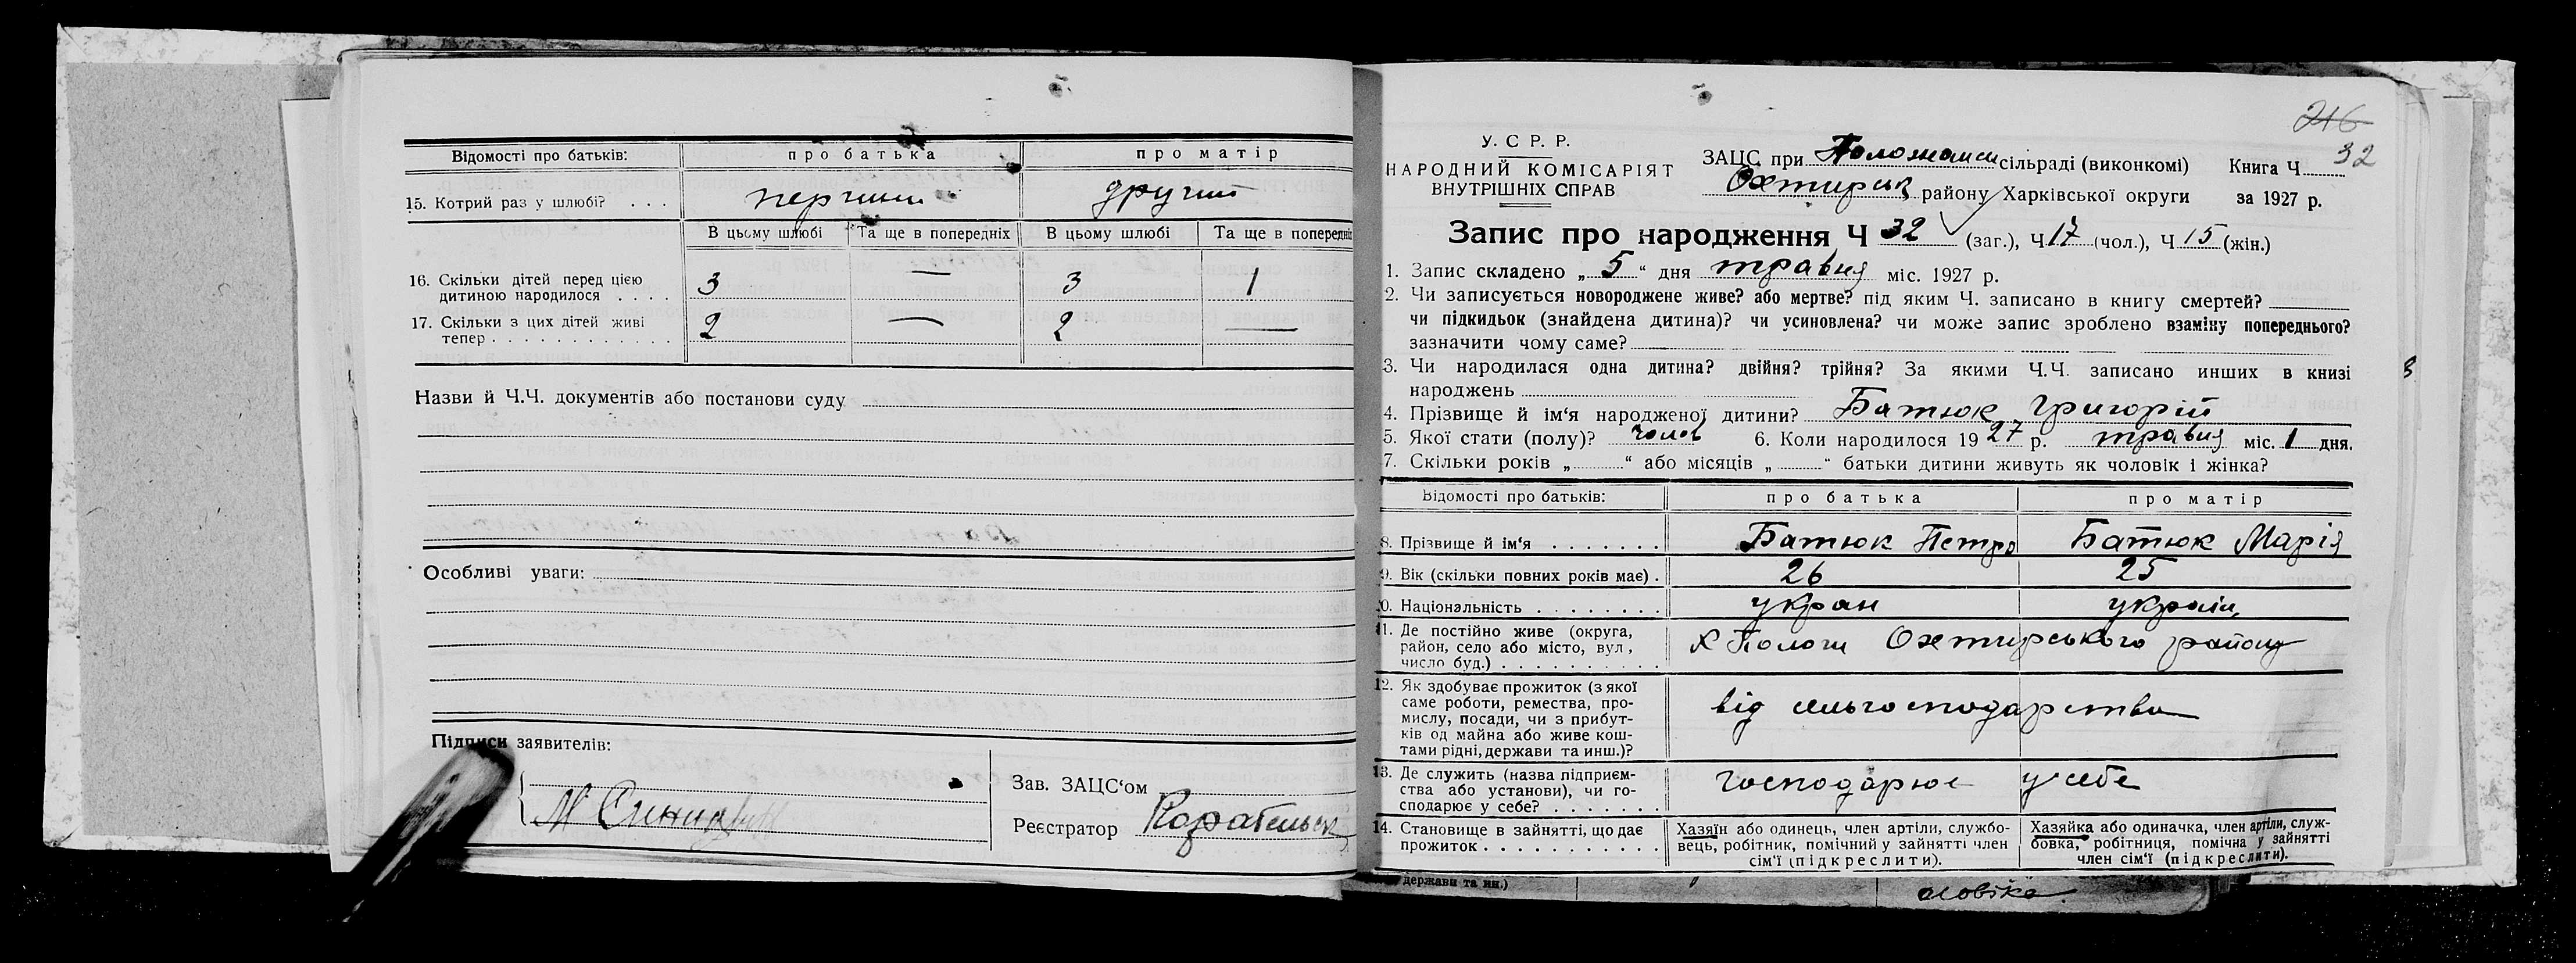 Відомості про батьків: про батька про матір
15. Котрий раз у шлюбі? . . . первий другий
В цьому шлюбі Та ще в попередніх В цьому шлюбі Та ще в попередніх
16. Скільки дітей перед цією
дитиною народилося . . . . 3 — 3 1
17. Скільки з цих дітей живі
тепер . . . . . . . . . . . . 2 — 2 —
Назви й Ч.Ч. документів або постанови суду
Особливі уваги:
Підписи заявителів:
Зав. ЗАЦС‘ом
Реєстратор
216
32
У. С. Р. Р.
НАРОДНИЙ КОМІСАРІЯТ
ВНУТРІШНІХ СПРАВ
ЗАЦС при сільраді (виконкомі) Книга Ч
Охтирськ району Харківської округи за 1927 р.
Запис про народження Ч 32 (заг.), Ч 17 (чол.), Ч 15 (жін.)
1. Запис складено „ 5 “ дня травня міс. 1927 р.
2. Чи записується новороджене живе? або мертве? під яким Ч. записано в книгу смертей?
чи підкидьок (знайдена дитина)? чи усиновлена? чи може запис зроблено взаміну попереднього?
зазначити чому саме?
3. Чи народилася одна дитина? двійня? трійня? За якими Ч.Ч. записано инших в книзі
народжень
4. Прізвище й ім‘я народженої дитини? Батюк Григорій
5. Якої стати (полу)? чолов 6. Коли народилося 19 27 р. травня міс. 1 дня.
7. Скільки років „ “ або місяців „ “ батьки дитини живуть як чоловік і жінка?
Відомості про батьків: про батька про матір
8. Прізвище й ім‘я . . . . . . . Батюк Петро Батюк Марія
9. Вік (скільки повних років має) . 26 25
0. Національність . . . . . . . . укран україн,
11. Де постійно живе (округа,
район, село або місто, вул,
число буд.) . . . . . . . . . . . х Пологи Охтирського району
12. Як здобуває прожиток (з якої
саме роботи, ремества, про-
мислу, посади, чи з прибут-
ків од майна або живе кош-
тами рідні, держави та инш.)? від сільгосподарства
13. Де служить (назва підприєм-
ства або установи), чи го-
сподарює у себе? . . . . . . . господарює у себе
14. Становище в зайнятті, що дає
прожиток . . . . . . . . . . .
Хазяїн або одинець, член артіли, службо-
вець, робітник, помічний у зайнятті член
сім‘ї (підкреслити).
Хазяйка або одиначка, член артіли, служ-
бовка, робітниця, помічна у зайнятті
член сім‘ї (підкреслити).
держави та ин.)